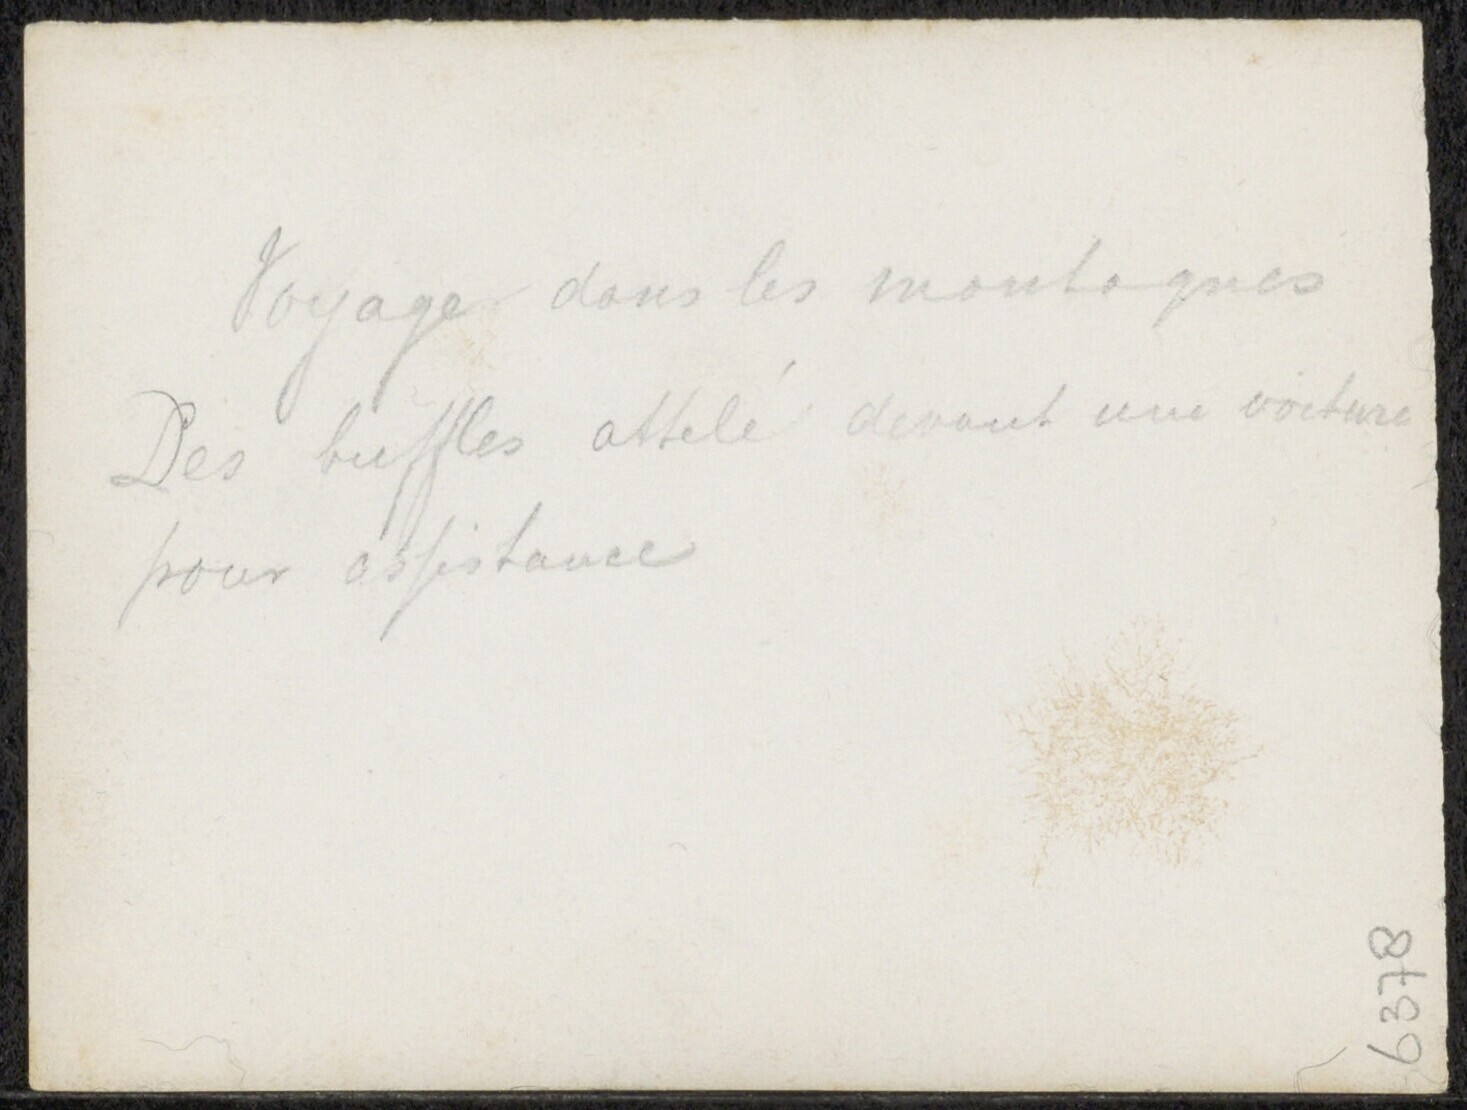 Voyage dans les montagnes
Des buffles attelé devant une voiture
pour assistance
6378